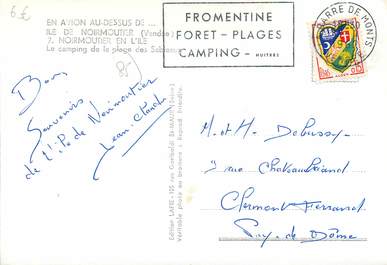 6€
EN AVION AU-DESSUS DE ...
ILE DE NOIRMOUTIER (Vendée)
7. NOIRMOUTIER EN L'ILE
Le camping de la plage des Sableaux
85
FROMENTINE
FORET - PLAGES
CAMPING - HUITRES
BARRE DE MONTS
Bons
Souvenirs
de l'île de Noirmoutier
Jean-Claude
Edition LAPIE
Véritable photo au bromure - Reprod. Interdite.
M. et H. Debussy
3 rue Chateaubriand
Clermont-Ferrand
Puy-de-Dôme